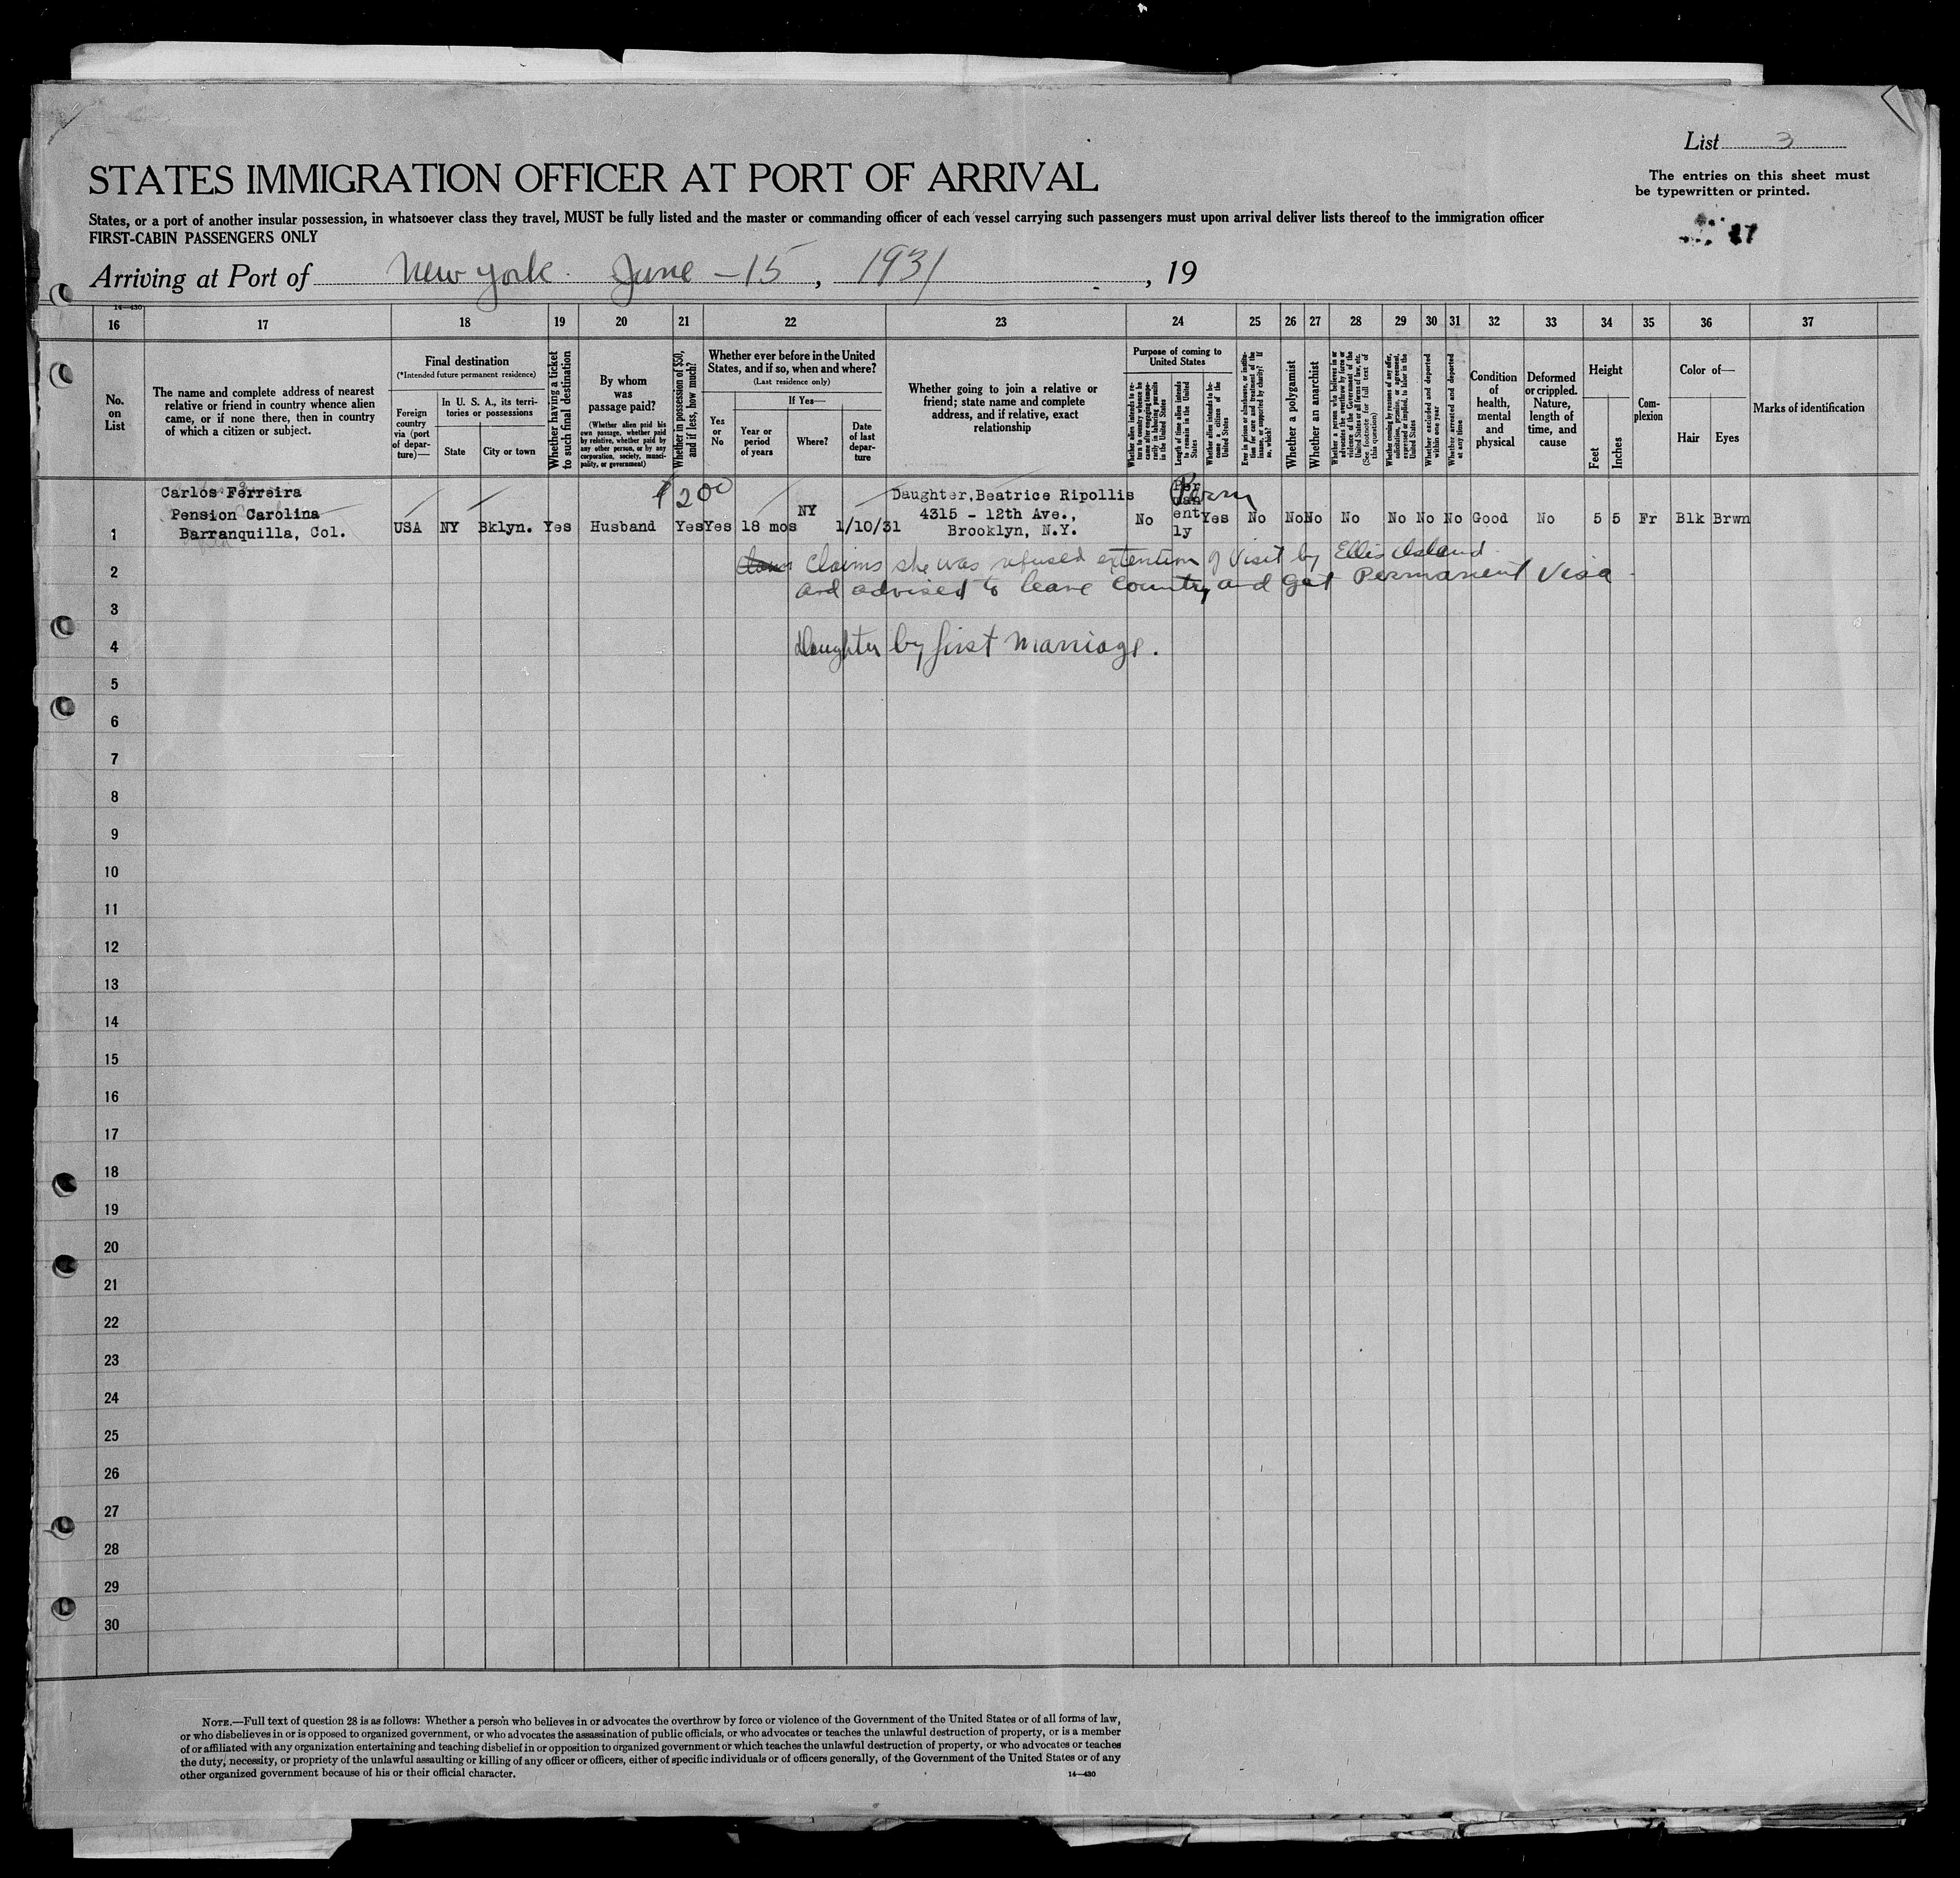 List 3
STATES IMMIGRATION OFFICER AT PORT OF ARRIVAL
The entries on this sheet must
be typewritten or printed.
States, or a port of another insular possession, in whatsoever class they travel, MUST be fully listed and the master or commanding officer of each vessel carrying such passengers must upon arrival deliver lists thereof to the immigration officer
FIRST-CABIN PASSENGERS ONLY
Arriving at Port of New York. June - 15, 1931, 19
14—430
16 17 18 19 20 21 22 23 24 25 26 27 28 29 30 31 32 33 34 35 36 37
No.
on
List
The name and complete address of nearest
relative or friend in country whence alien
came, or if none there, then in country
of which a citizen or subject.
Final destination
(*Intended future permanent residence)
Foreign
country
via (port
of depar-
ture)—
In U. S. A., its terri-
tories or possessions
State
City or town
Whether having a ticket
to such final destination
By whom
was
passage paid?
(Whether alien paid his
own passage, whether paid
by relative, whether paid by
any other person, or by any
corporation, society, munici-
pality, or government)
Whether in possession of $50,
and if less, how much?
Whether ever before in the United
States, and if so, when and where?
(Last residence only)
Yes
or
No
If Yes—
Year or
period
of years
Where?
Date
of last
depar-
ture
Whether going to join a relative or
friend; state name and complete
address, and if relative, exact
relationship
Purpose of coming to
United States
Whether alien intends to re-
turn to country whence he
came after engaging tempo-
rarily in laboring pursuits
in the United States
Length of time alien intends
to remain in the United
States
Whether alien intends to be-
come a citizen of the
United States
Ever in prison or almshouse, or institu-
tion for care and treatment of the
insane, or supported by charity? If
so, which?
Whether a polygamist
Whether an anarchist
Whether a person who believes in or
advocates the overthrow by force or
violence of the Government of the
United States or all forms of law, etc.
(See footnote for full text of
this question)
Whether coming by reason of any offer,
solicitation, promise, or agreement,
expressed or implied, to labor in the
United States
Whether excluded and deported
within one year
Whether arrested and deported
at any time
Condition
of
health,
mental
and
physical
Deformed
or crippled.
Nature,
length of
time, and
cause
Height
Feet
Inches
Com-
plexion
Color of—
Hair
Eyes
Marks of identification
Carlos Ferreira
Pension Carolina
Barranquilla, Col.
1 USA NY Bklyn. Yes Husband Yes $200 Yes 18 mos NY 1/10/31
Daughter, Beatrice Ripollis
4315 - 12th Ave.,
Brooklyn, N.Y.
No
Per
man
ent
ly
Perm
Yes No No No No No No No Good No 5 5 Fr Blk Brwn
2 Claims she was refused extention of Visit by Ellis Island
and advised to leave Country and get Permanent Visa
3
4 Daughter by first Marriage.
5
6
7
8
9
10
11
12
13
14
15
16
17
18
19
20
21
22
23
24
25
26
27
28
29
30
NOTE.—Full text of question 28 is as follows: Whether a person who believes in or advocates the overthrow by force or violence of the Government of the United States or of all forms of law,
or who disbelieves in or is opposed to organized government, or who advocates the assassination of public officials, or who advocates or teaches the unlawful destruction of property, or is a member
of or affiliated with any organization entertaining and teaching disbelief in or opposition to organized government or which teaches the unlawful destruction of property, or who advocates or teaches
the duty, necessity, or propriety of the unlawful assaulting or killing of any officer or officers, either of specific individuals or of officers generally, of the Government of the United States or of any
other organized government because of his or their official character.
14—430